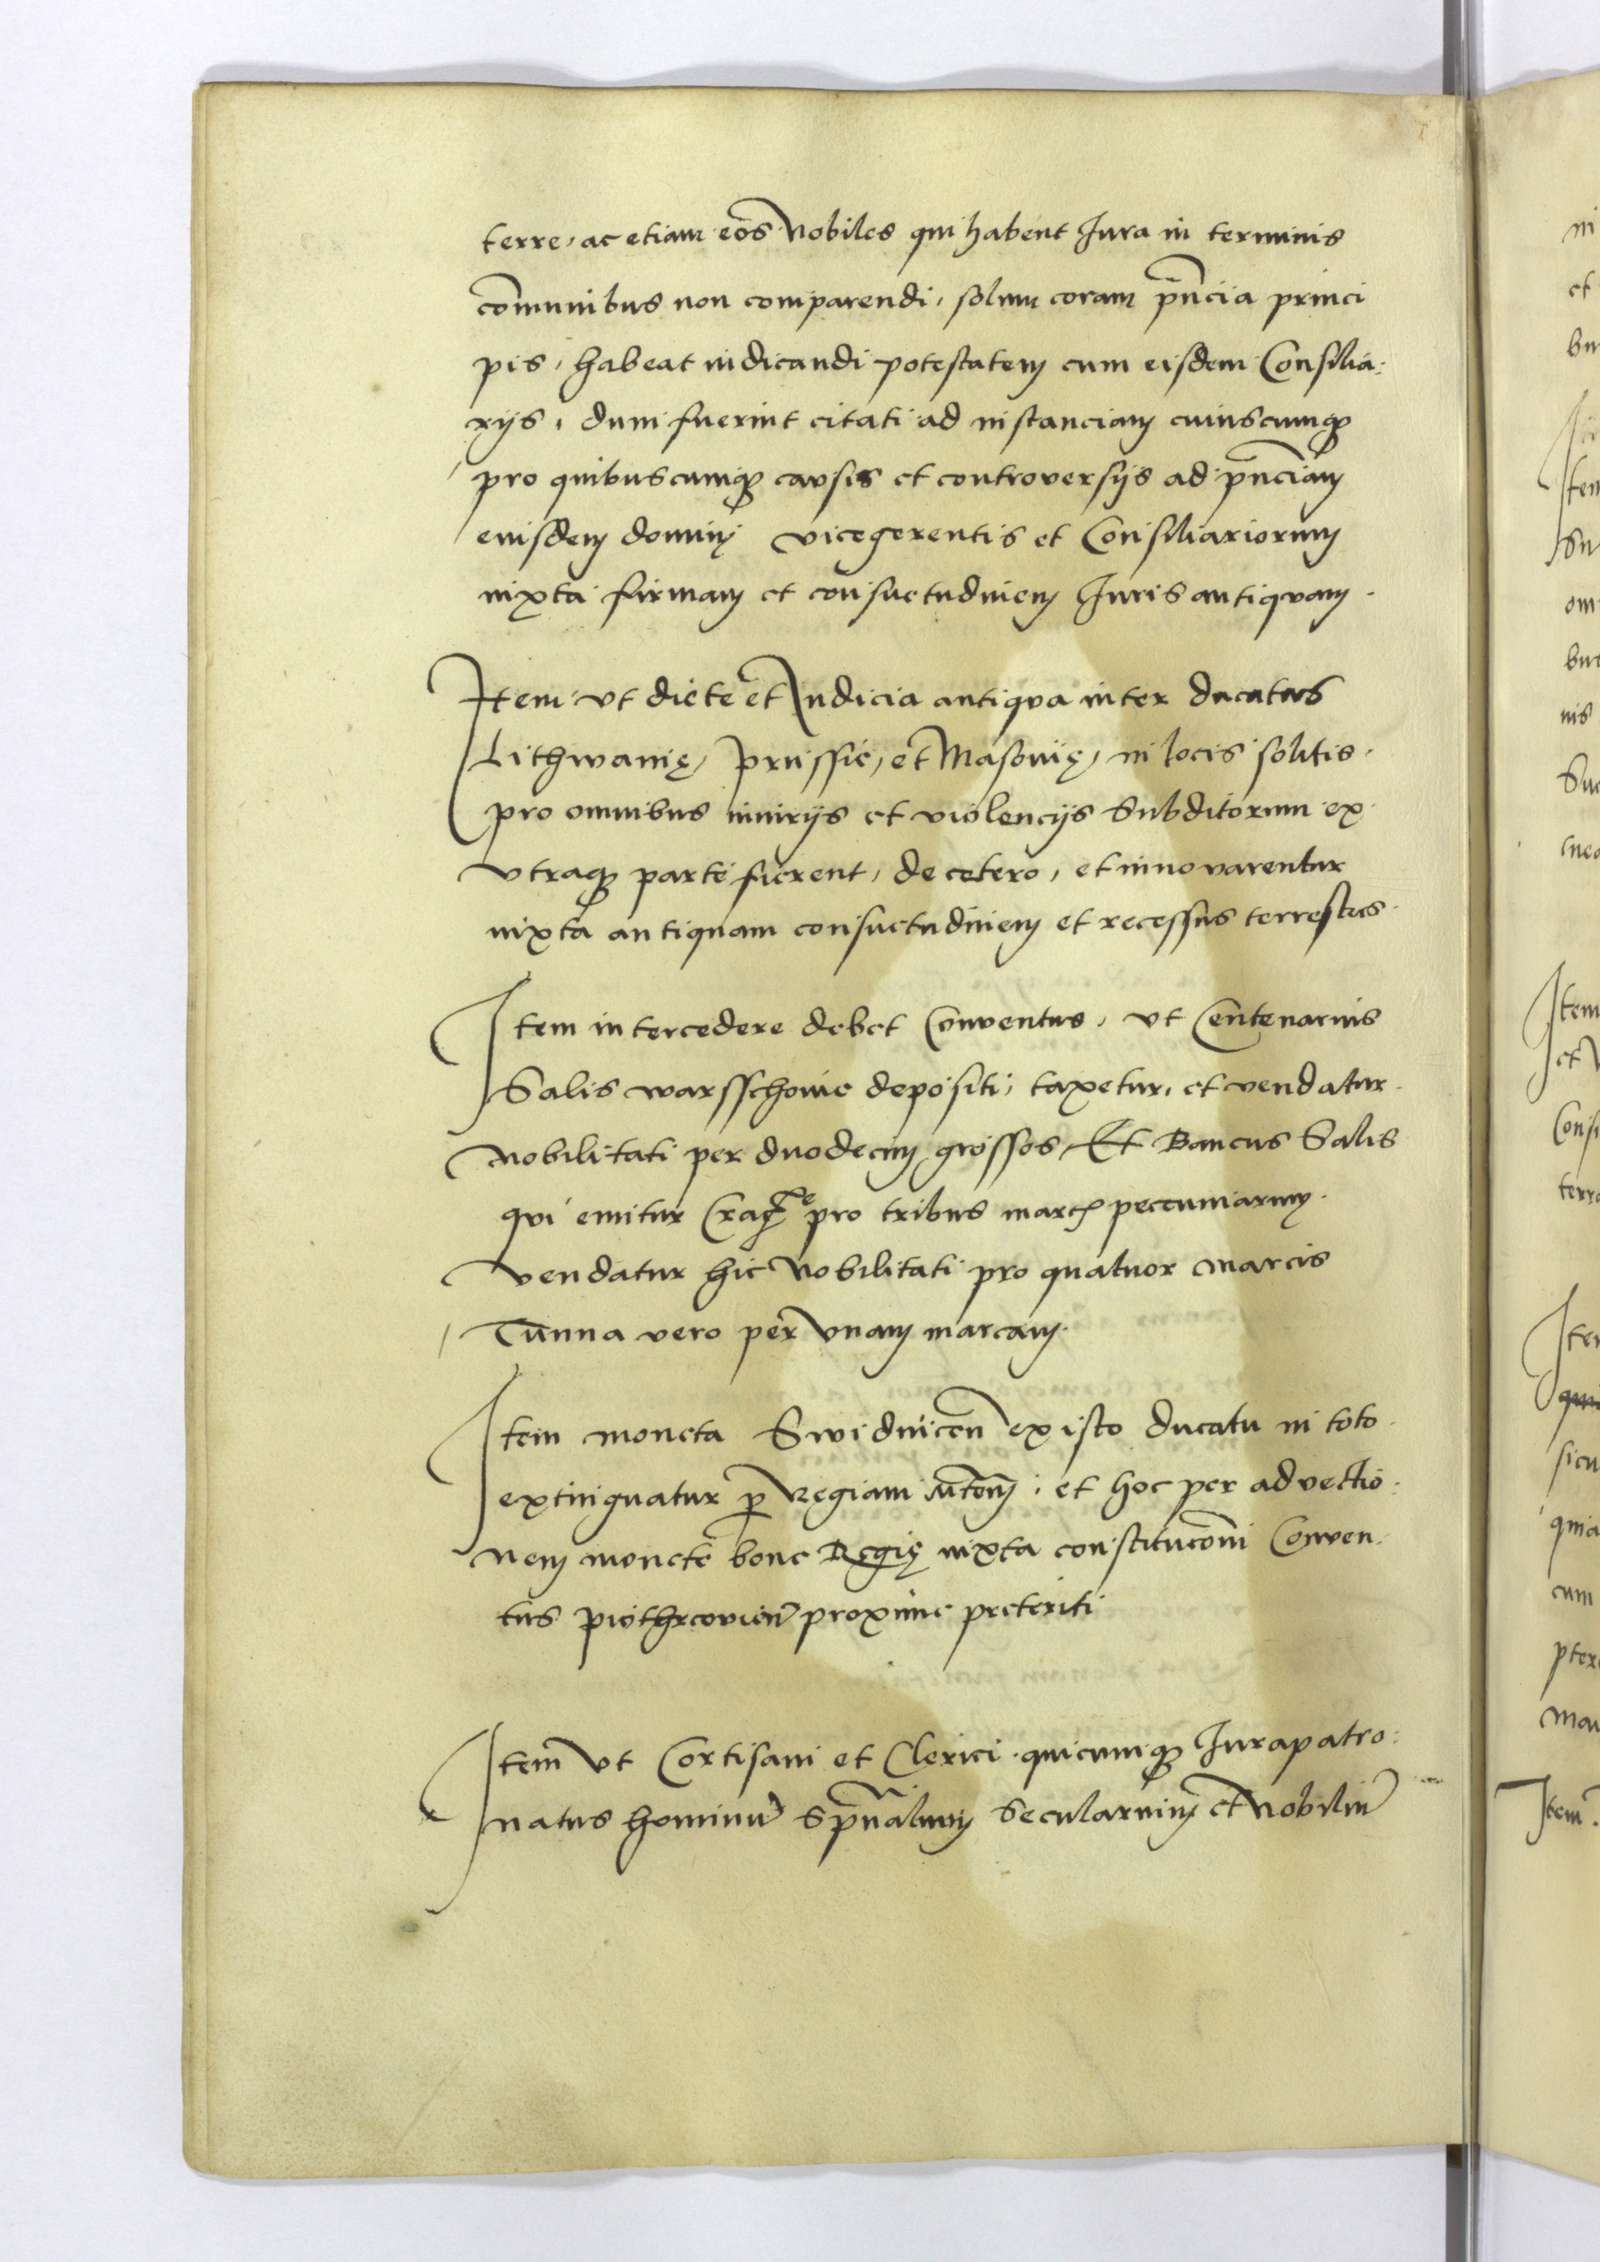 terre, ac etiam eos Nobiles qui habent Jura in terminis
comunibus non comparendi, solum coram pn̄cia princi
pis, habeat iudicandi potestatem cum eisdem Consilia:
rijs, dum fuerint citati ad instanciam cuiuscumq3
pro quibuscumq3 causis et controversijs ad pn̄ciam
eiusdem domini vicegerentis et Consiliariorum
iuxta firmam et consuetudinem Juris antiquam.
Item vt diete et Iudicia antiqua inter ducatus
Lithwanię, Prussie, et Masovię, in locis solitis.
pro omnibus iniurijs et violencijs Subditorum ex
vtraq3 parte fierent, de cetero, et innovarentur
iuxta antiquam consuetudinem et recessus terrestres.
Item intercedere debet Conventus, vt Centenarius
Salis warsschovie depositi, taxetur, et vendatur.
Nobilitati per duodecim grossos, Et Bancus Salis
qui emitur pro tribus pecuniarum.
Vendatur hic Nobilitati pro quatuor marcis
Tunna vero per vnam marcam.
Item moneta Swidnicen̄ ex isto ducatu in toto.
extinguatur p̱ Regiam et hoc per advectio:
nem monete bone Regię iuxta constitucōni Conven.
tus piothrcovien̄ proxime preteriti
Item vt Cortisani et Clerici quicumq3 Jurapatro:
natus hominū spūalium Secularium et Nobiliū
ni
et
Item
om
nis
Item
et
Consi
terr
Item
sicu
quia
cum
Item